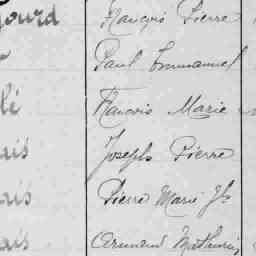 gourd François Pierre
Paul Emmanuel
lé François Marie
ais Joseph Pierre
ais Pierre Marie Jh
ais Armand Mathurin